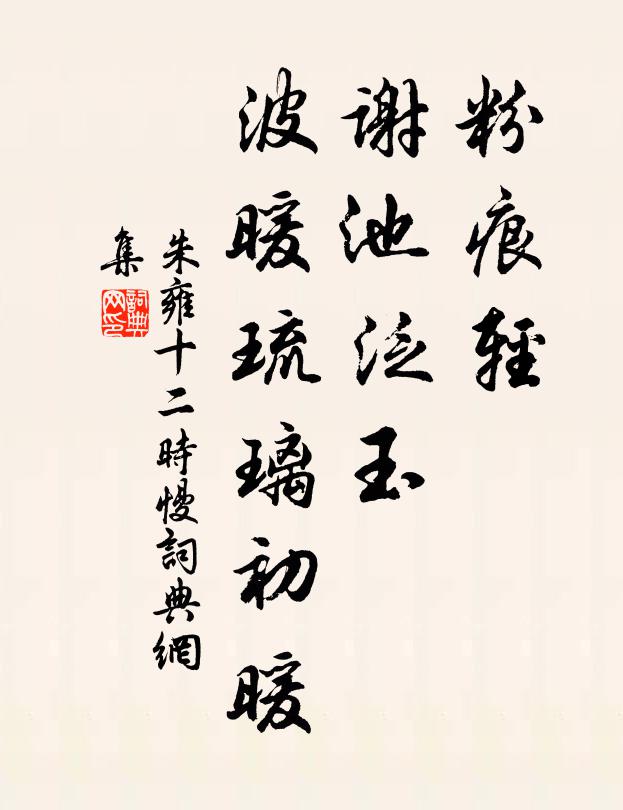 粉痕輕
謝池泛玉
波暖琉璃初暖
朱雍十二時慢詞典網
集
詞典
网印